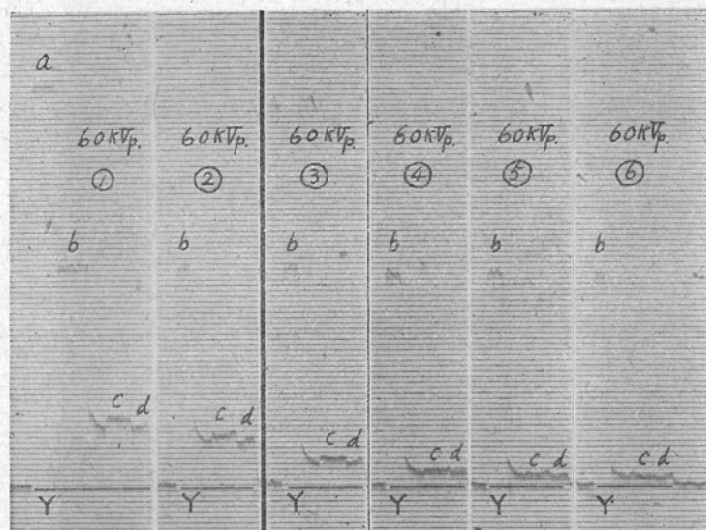 a
60kVp. 60kVp. 60kVp. 60kVp. 60kVp. 60kVp.
① ② ③ ④ ⑤ ⑥
b b b b b b
c d c d c d c d c d c d
Y Y Y Y Y Y